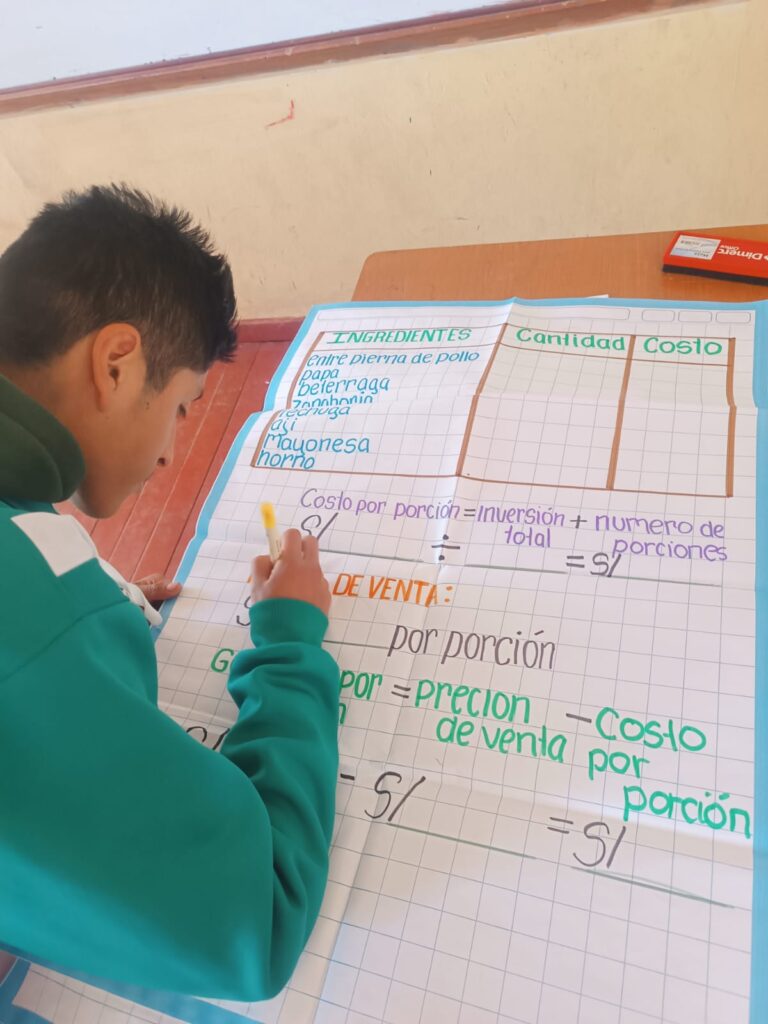 INGREDIENTES Cantidad Costo
entre pierna de pollo
papa
beterraga
zanahoria
lechuga
aji
mayonesa
horno
Costo por porción = inversión + numero de
total porciones
S/ ÷ = S/
DE VENTA:
por porción
por = PRECION - Costo
de venta por
porción
- S/ = S/
Dimerc
Office